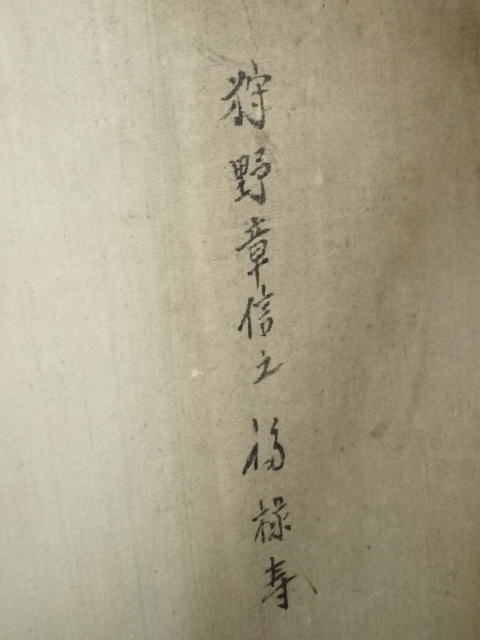 狩野章信之 福禄寿